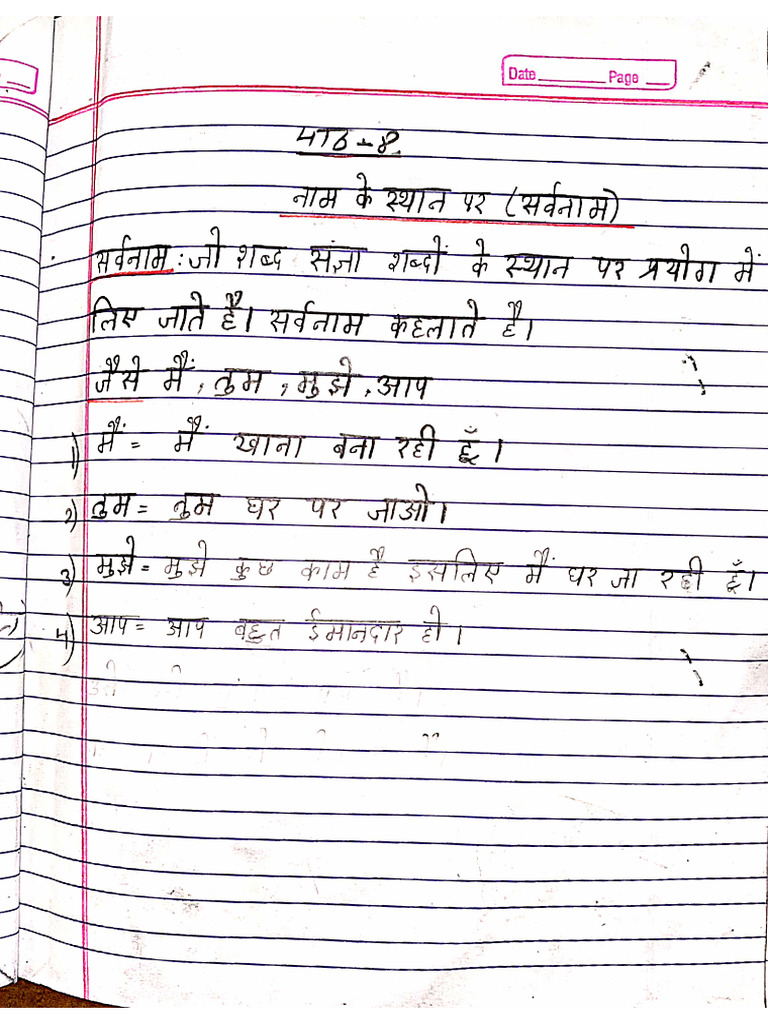 Date ________ Page ___
पाठ - 8.
नाम के स्थान पर (सर्वनाम)
सर्वनाम : जो शब्द संज्ञा शब्दों के स्थान पर प्रयोग में
लिए जाते है। सर्वनाम कहलाते है।
जैसे मैं, तुम, मुझे, आप
1) मैं = मैं खाना बना रही हूँ।
2) तुम = तुम घर पर जाओ।
3) मुझे = मुझे कुछ काम है इसलिए मैं घर जा रही हूँ।
4) आप = आप बहुत ईमानदार हो।